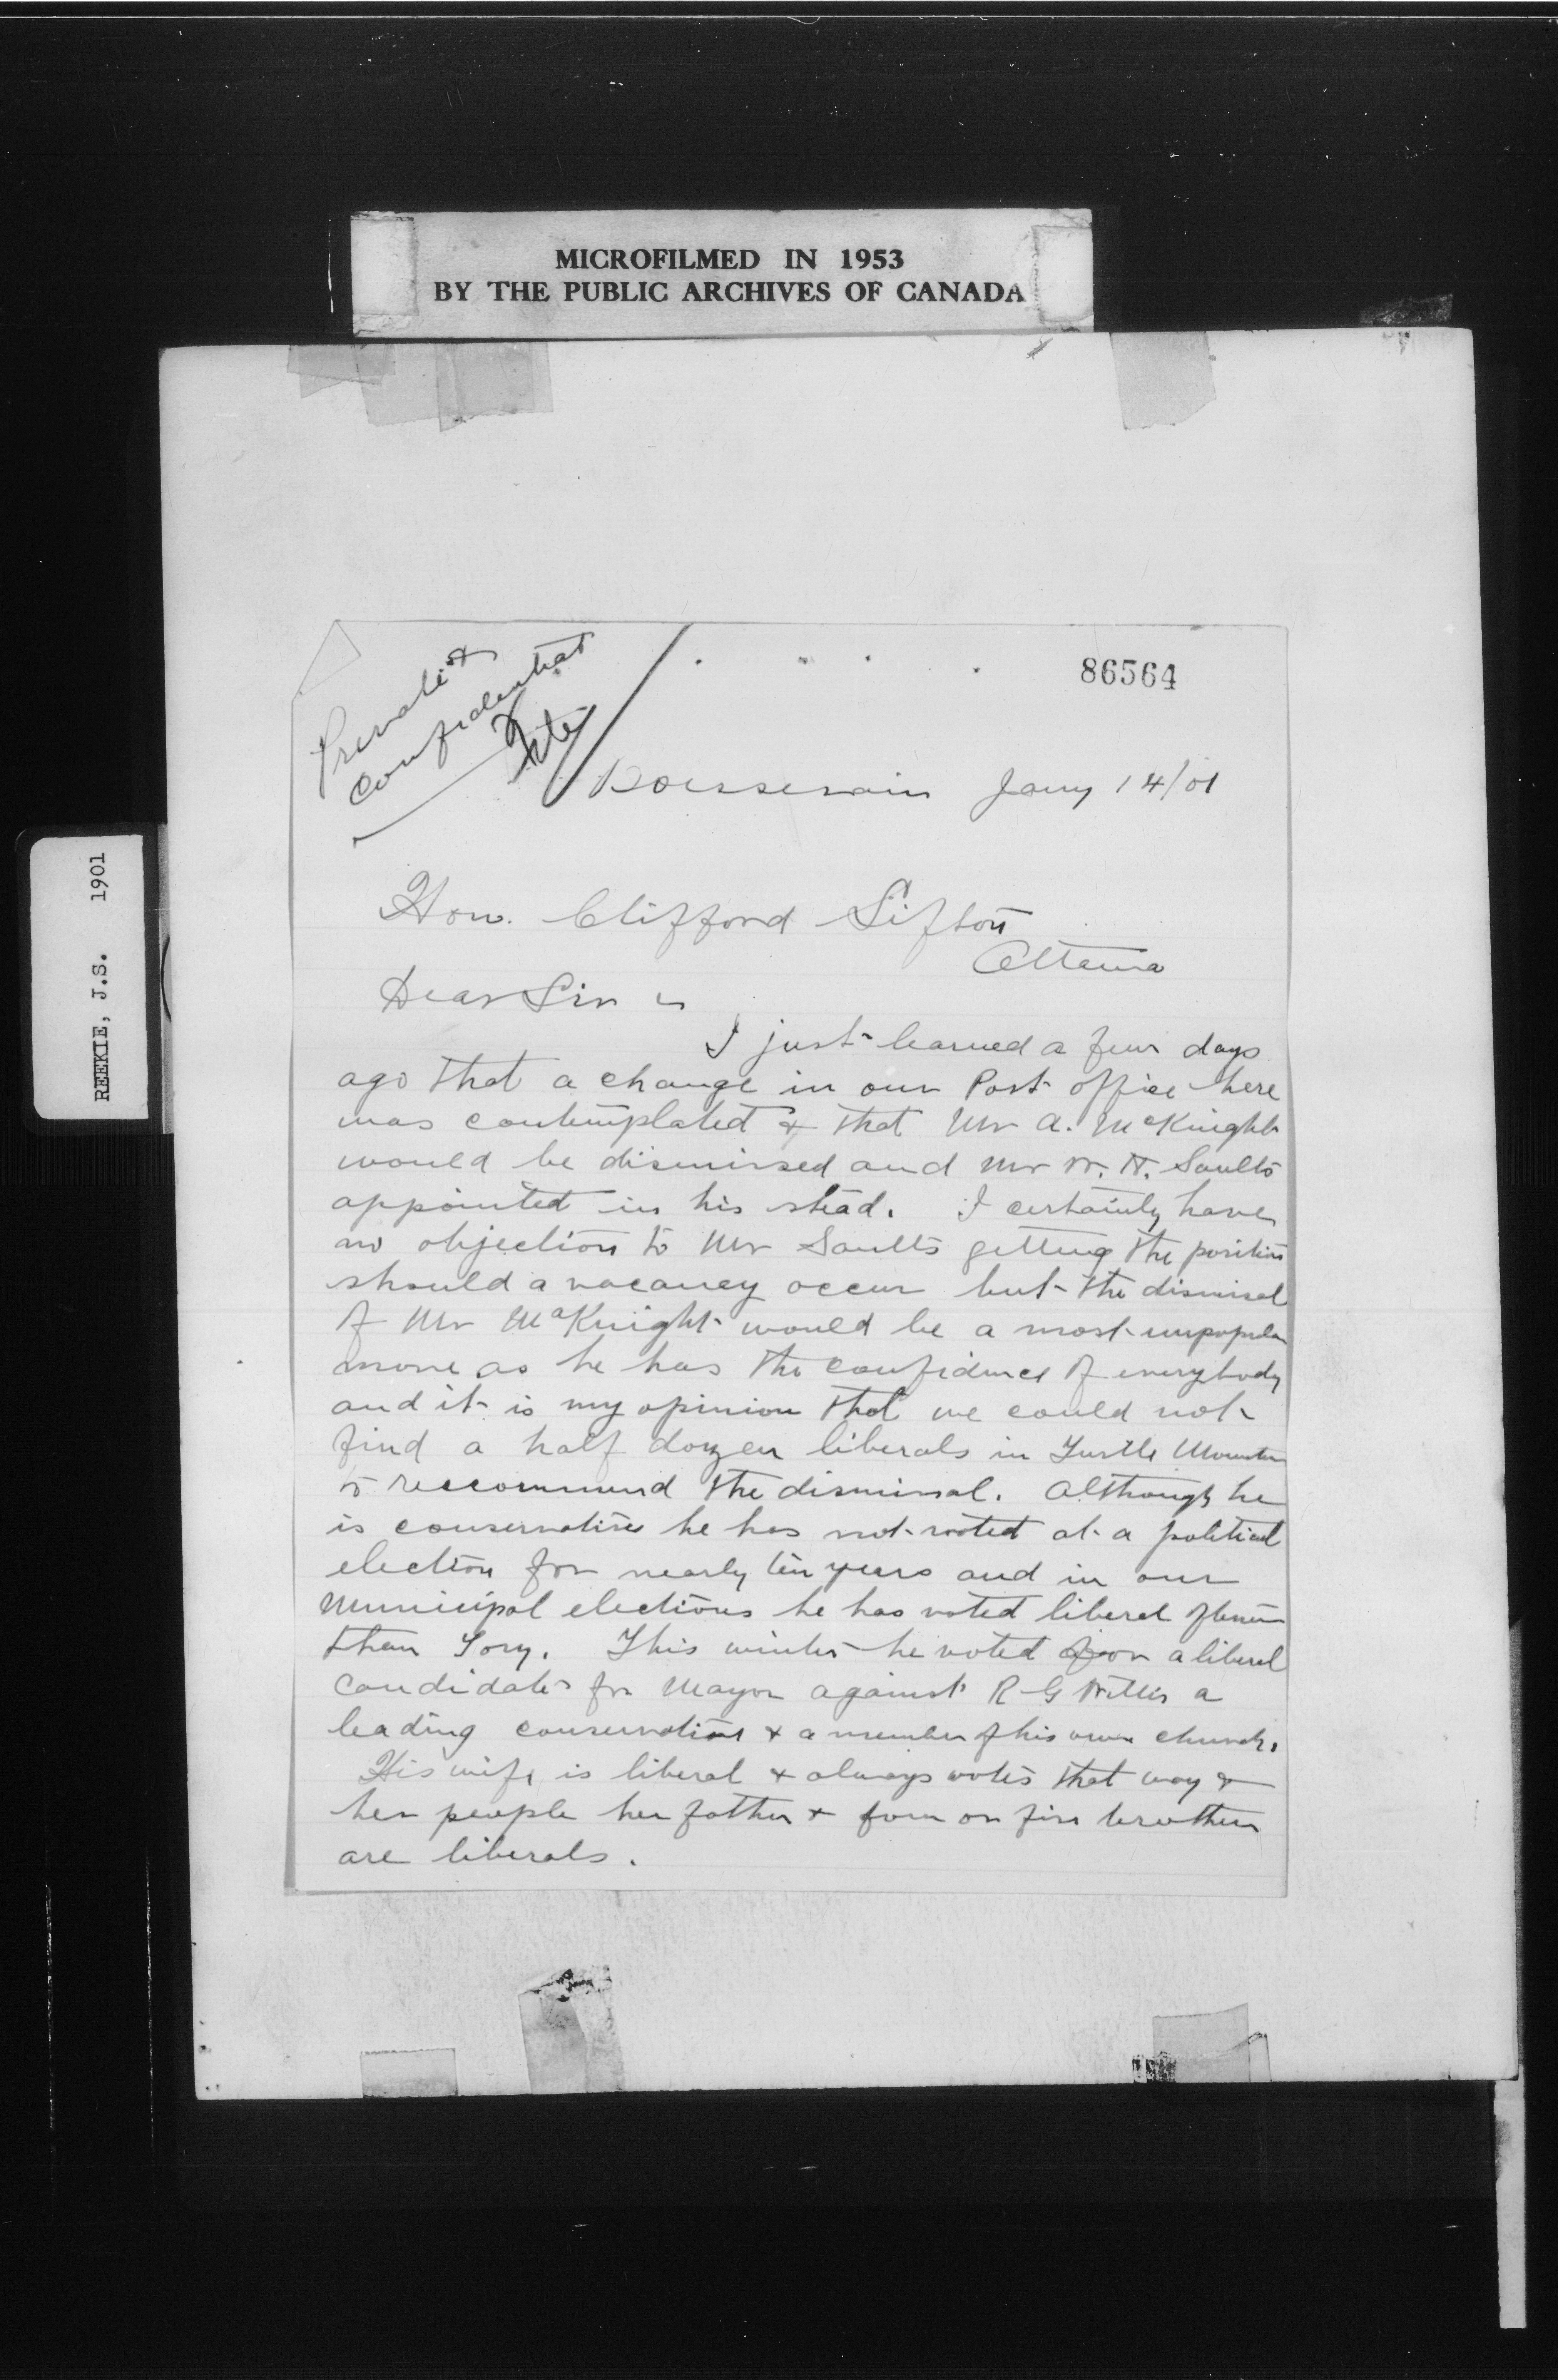 MICROFILMED IN 1953
BY THE PUBLIC ARCHIVES OF CANADA
REEKIE, J.S. 1901
86564
Private &
Confidential
File
Boissevain Jany 14/01
Hon. Clifford Sifton
Ottawa
Dear Sir
I just learned a few days
ago that a change in our Post office here
was contemplated & that Mr A. McKnight
would be dismissed and Mr W. H. Saults
appointed in his stead. I certainly have
no objection to Mr Saults getting the position
should a vacancy occur but the dismisal
of Mr McKnight would be a most unpopular
move as he has the confidence of everybody
and it is my opinion that we could not
find a half dozen liberals in Turtle Mountain
to reccommend the dismissal. Although he
is conservative he has not voted at a political
election for nearly ten years and in our
Municipal elections he has voted liberal oftener
than Tory. This winter he voted for a liberal
Candidate for Mayor against R G Willis a
leading conservative & a member of his own church.
His wife is liberal & always votes that way &
her people her father & four or five brothers
are liberals.